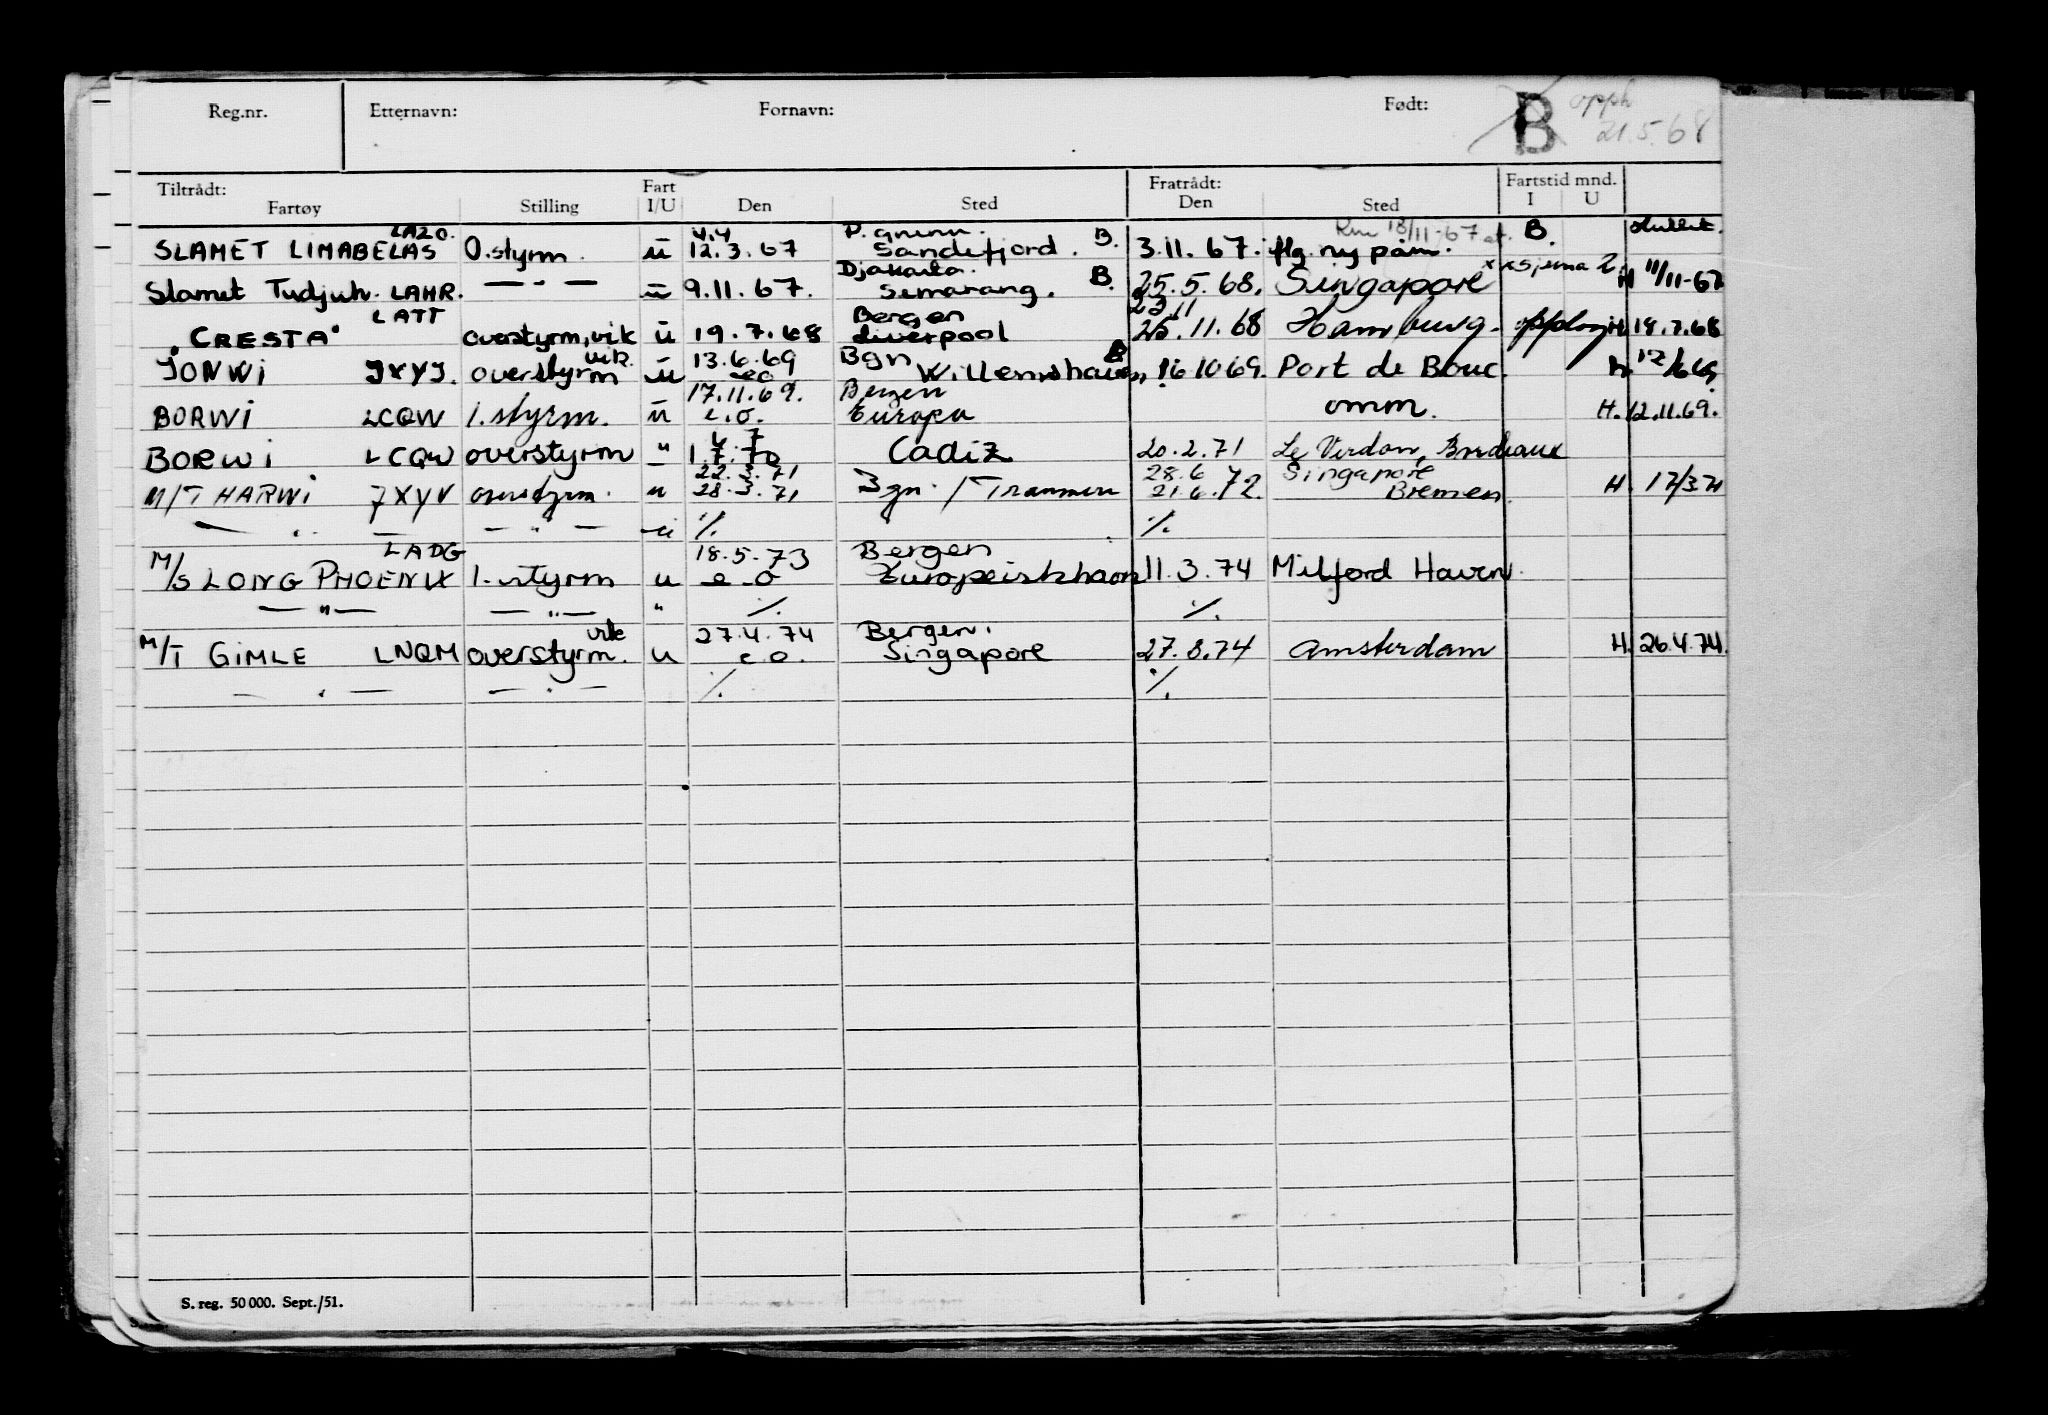 Reg.nr. Etternavn: Fornavn: Født: B opph
21.5.68
Tiltrådt: Fart Fratrådt: Fartstid mnd.
Fartøy Stilling I/U Den Sted Den Sted I U
LAZO. 4.4 18/11-67 B.
SLAMET LIMABELAS O.styrm. u 12.3.67 Sandefjord. B. 3.11.67. flg. ny påm.
Djakarta.
Slamet Tudjuh. LAHR. — " — u 9.11.67. Semarang. B. 25.5.68. Singapore H 11/11-67
LATT Bergen 23 11
"CRESTA" overstyrm, vik u 19.7.68 Liverpool 25.11.68 Hamburg. H. 18.7.68
vik. 13.6.69 Bgn B
JONWI JXYJ. overstyrm u eo Willemshaven 16.10.69. Port de Bouc. H. 12/6 69
17.11.69. Bergen
BORWI LCQW 1.styrm. u e.o. Europa omm. H. 12.11.69.
4 7
BORWI LCQW overstyrm " 1.7.70 Cadiz 20.2.71 Le Verdon, Bordeaux
22.3.71 28.6 Singapore
M/T HARWI JXYV overstyrm. u 28.3.71 Bgn. / Tranmere 21.6.72. Bremen. H. 17/3 71
— " — — " — u %. %.
LADG 18.5.73 Bergen
M/S LONG PHOENIX 1.styrm u e.o Europeisk havn 11.3.74 Milford Haven.
— " — — " — " %. %.
vik 27.4.74 Bergen.
M/T GIMLE LNQM overstyrm. u e.o. Singapore 27.8.74 Amsterdam H. 26.4.74.
— " — — " — %. %.
S. reg. 50 000. Sept./51.